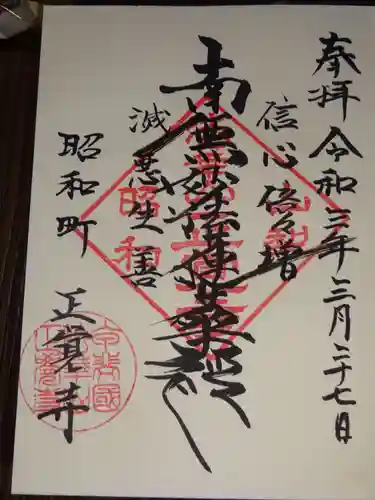 奉拝 令和三年三月二十七日
信心倍増
南無妙法蓮華経
滅悪生善
昭和町
正覚寺
昭和